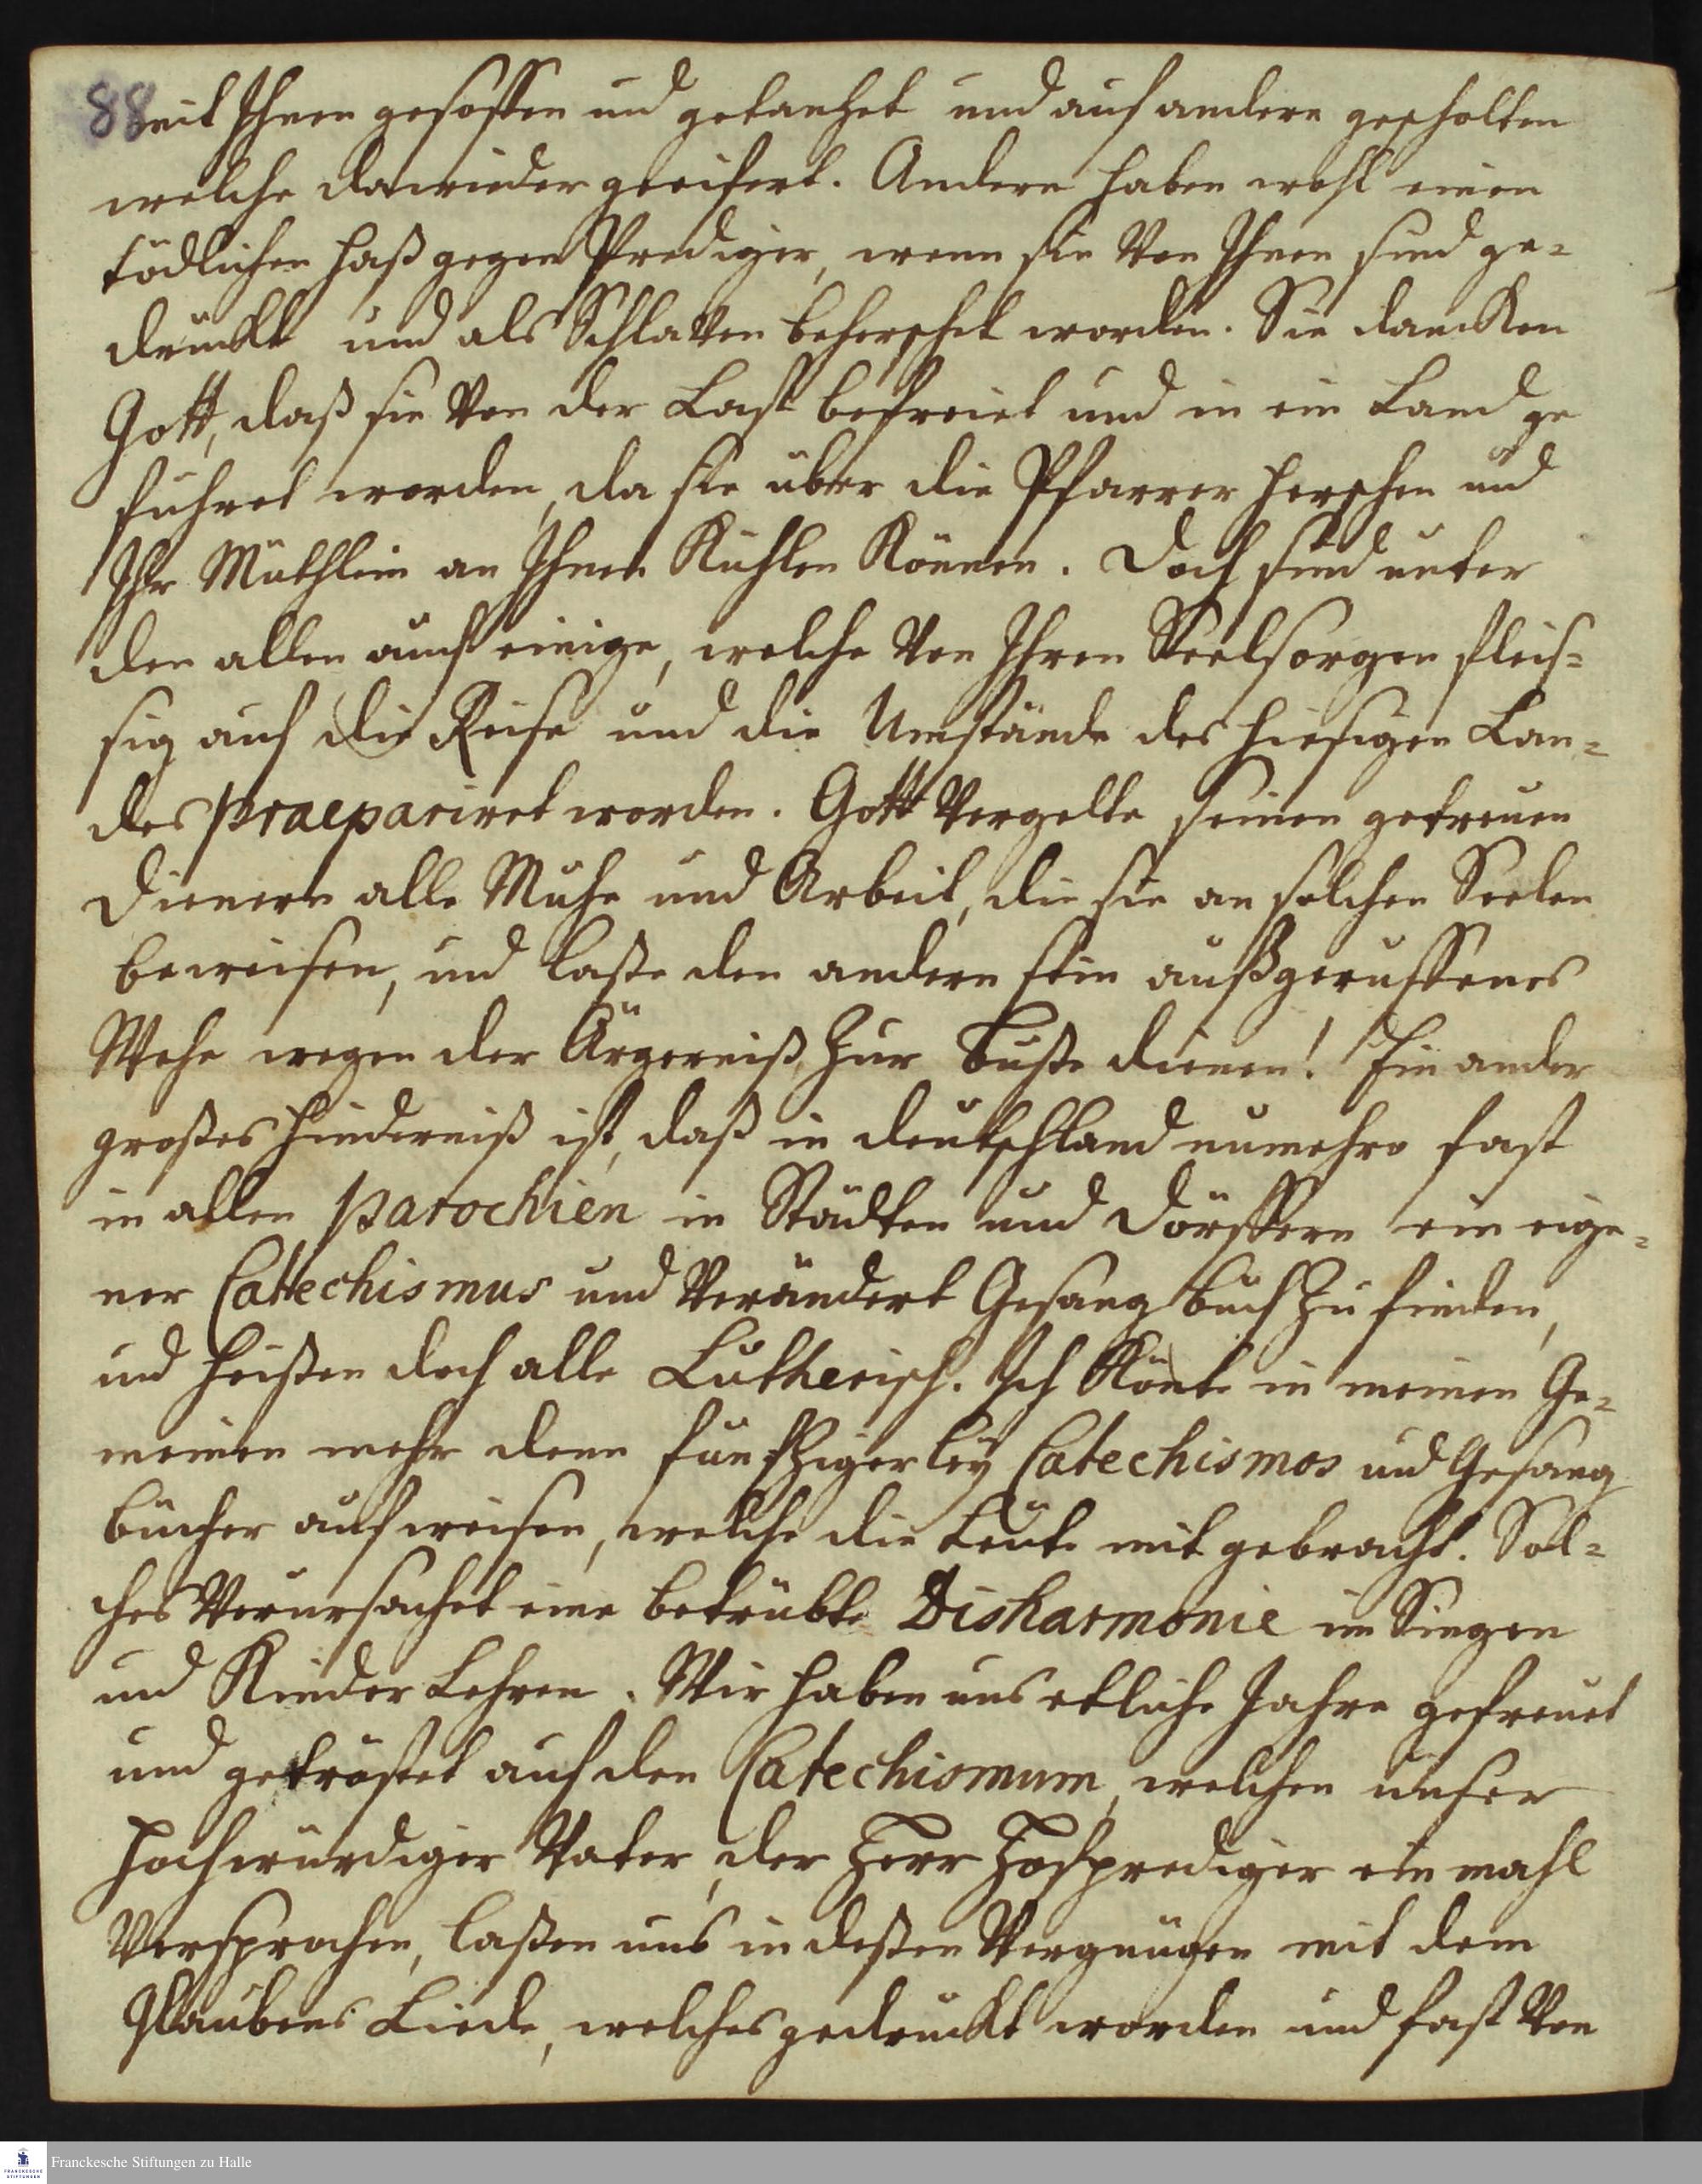 88
mit Ihnen gesoffen und getantzet und auf andere gescholten
welche dawieder geeifert. Andere haben wohl einen
tödlichen Haß gegen Prediger, wenn sie von Ihnen sind ge-
druckt und als Schlaven beherschet worden. Sie dancken
Gott, daß sie von der Last befreiet und in ein Land ge
führet worden, da sie über die Pfarrer herschen und
Ihr Müthlein an Ihnen kühlen können. Doch sind unter
den allen auch einige, welche von Ihren Seelsorgern fleis-
sig auf die Reise und die Umstände des hiesigen Lan-
des praepariret worden. Gott vergelte seinen getreuen
Dienern alle Mühe und Arbeit, die sie an solchen Seelen
beweisen, und laße den andern sein außgeruffenes
Wehe wegen der Ärgerniß zur Buße dienen! Ein ander
großes Hinderniß ist, daß in Deutschland numehro fast
in allen Parochien in Städten und Dörffern ein eige-
ner Cattechismus und verändert Gesang Buch zu finden,
und heißen doch alle Lutherisch. Ich könte in meinen Ge-
meinen mehr denn funffzigerley Catechismos und Gesang
bücher aufweisen, welche die Leute mit gebracht. Sol-
ches verursachet eine betrübte Disharmonie im Singen
und Kinder Lehren. Wir haben uns etliche Jahre gefreuet
und getröstet auf den Catechismum, welchen unser
Hochwürdiger Vater, der Herr Hofprediger ein mahl
versprochen, laßen uns indeßen vergnügen mit dem
Glaubens Liede, welches gedruckt worden und fast von
Franckesche Stiftungen zu Halle
FRANCKESCHE
STIFTUNGEN